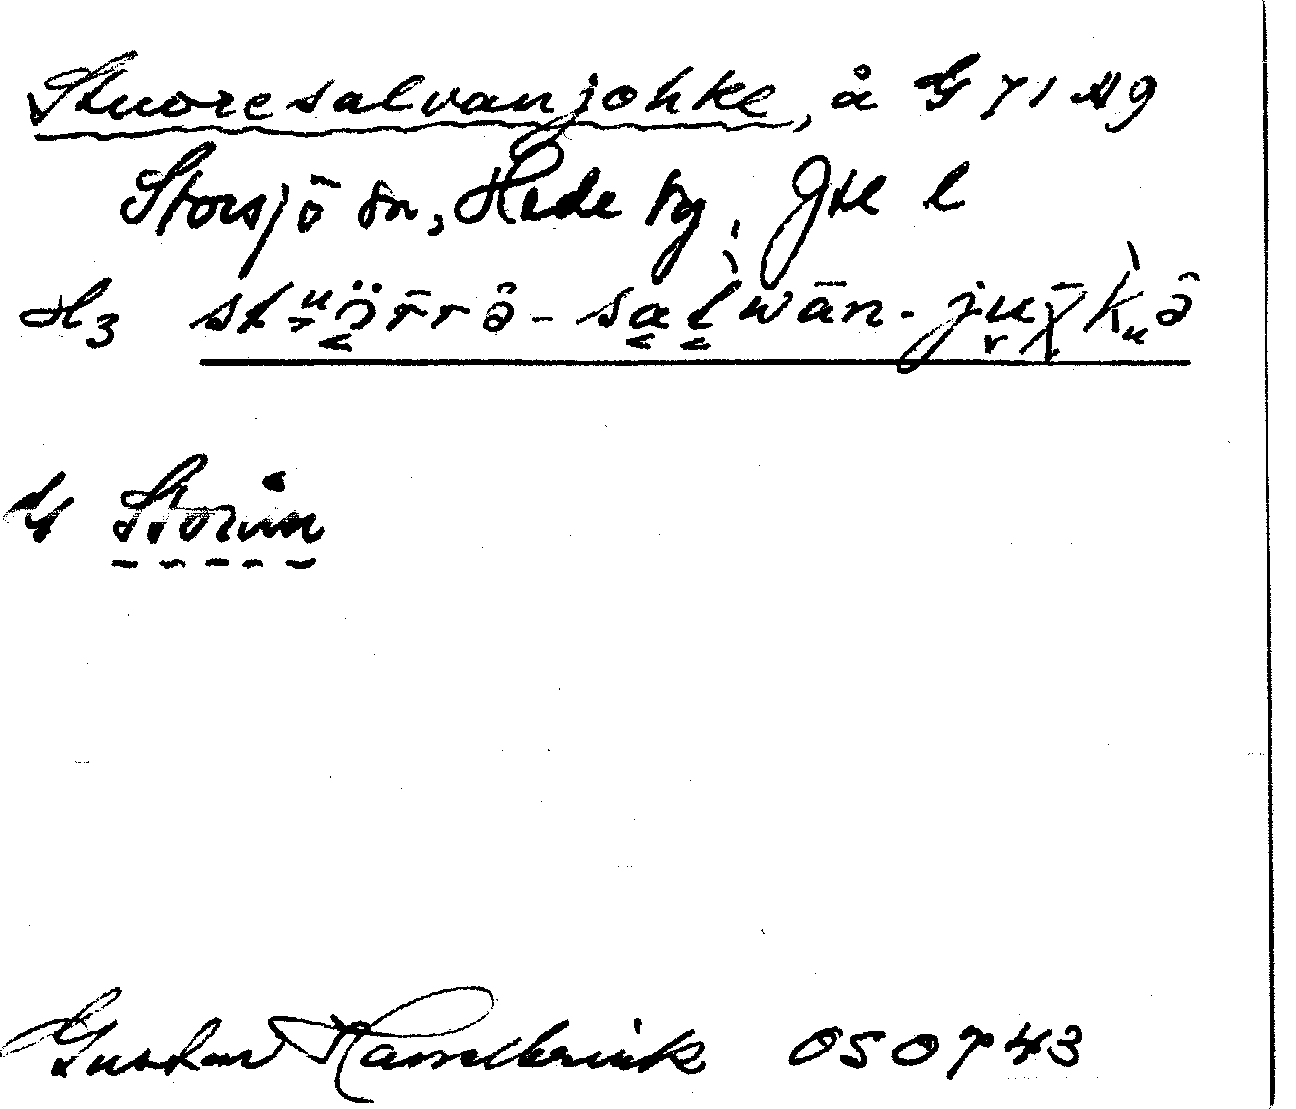 Stuoresalvanjohke, å G 71 A9
Storsjö sn, Hede tg, Jtl l
H3 stuörrə̂-salwān-juχkə̂
Storån
Gustav Hasselbrink 050743